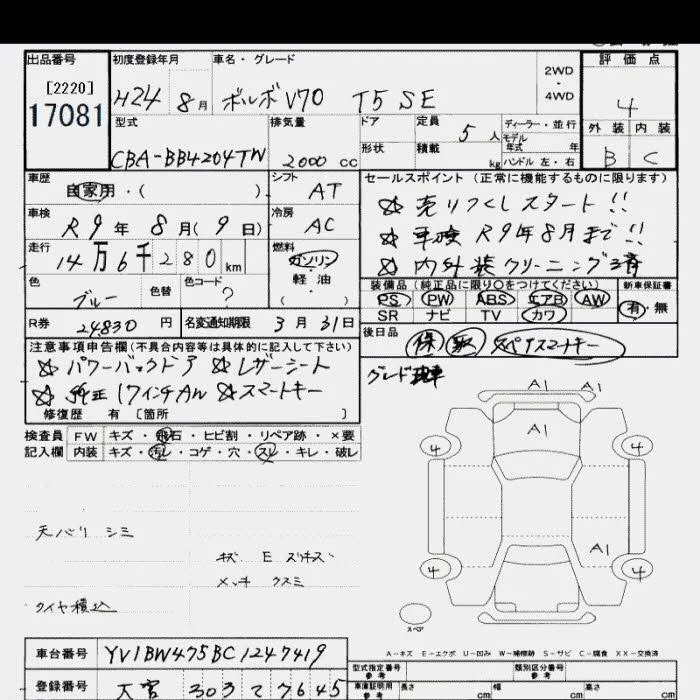 出品番号 初度登録年月 車名・グレード 評価点
[2220]
17081
H24 8月 ボルボ V70 T5 SE 2WD ・ 4WD 4
型式 排気量 ドア 定員 5人 ディーラー・並行 外装 内装
CBA-BB4204TW 2000 cc 形状 積載 kg モデル年式 年 ハンドル 左・右 B C
車歴 自家用・( ) シフト AT セールスポイント (正常に機能するものに限ります)
☆ 売りつくしスタート!!
車検 R9年 8月(9日) 冷房 AC ☆ 車検 R9年8月まで!!
走行 14万6千280km 燃料 ガソリン 軽油 ( ) ☆ 内外装クリーニング済
色 ブルー 色替 色コード ?
装備品 (純正品に限り○をつけてください) 新車保証書
PS PW ABS エアB AW 有・無
SR ナビ TV カワ
R券 24830円 名変通知期限 3月31日
後日品 保 取 スペアスマートキー
注意事項申告欄 (不具合内容等は具体的に記入して下さい)
☆ パワーバックドア ☆ レザーシート
☆ 純正17インチAW ☆ スマートキー
修復歴 有 [箇所 ]
検査員 FW キズ・飛石・ヒビ割・リペア跡・×要
記入欄 内装 キズ・汚レ・コゲ・穴・スレ・キレ・破レ
A1 A1
A1
4 4
A1
4 4
天バリ シミ
キズ E スリキズ
メッキ クスミ
タイヤ積込
スペア
A-キズ E-エクボ U-凹み W-補修跡 S-サビ C-腐食 XX-交換済
車台番号 YV1BW475BC1247419
型式指定番号 参考 類別区分番号 参考
登録番号 大宮 303 て 7645
車庫証明用 参考 長さ cm 幅 cm 高さ cm